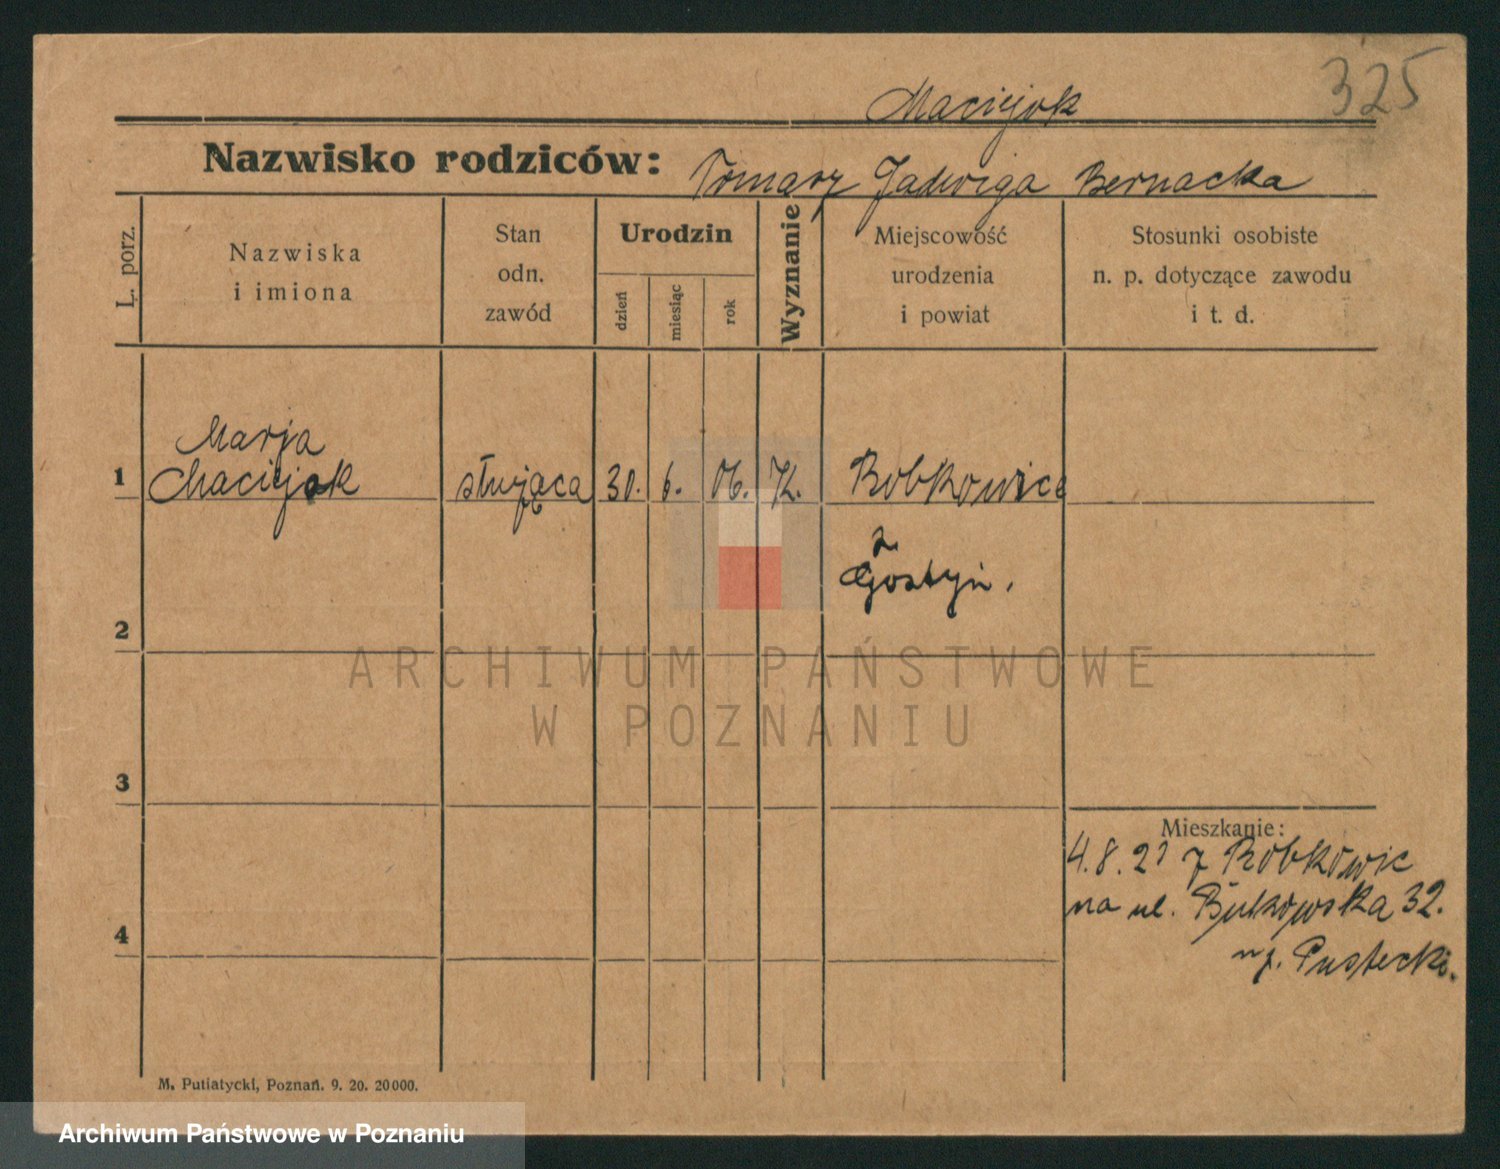 325
Maciejok
Nazwisko rodziców: Tomasz Jadwiga Bernacka
L. porz.
Nazwiska
i imiona
Stan
odn.
zawód
Urodzin
dzień
miesiąc
rok
Wyznanie
Miejscowość
urodzenia
i powiat
Stosunki osobiste
n. p. dotyczące zawodu
i t. d.
Marja
1 Maciejok służąca 30. 6. 06. K. Bobkowice
Gostyń.
2
ARCHIWUM PAŃSTWOWE
W POZNANIU
3
Mieszkanie:
4.8.21 z Bobkowic
na ul. Bukowska 32.
Pustecki.
4
M. Putiatycki, Poznań. 9. 20. 20000.
Archiwum Państwowe w Poznaniu